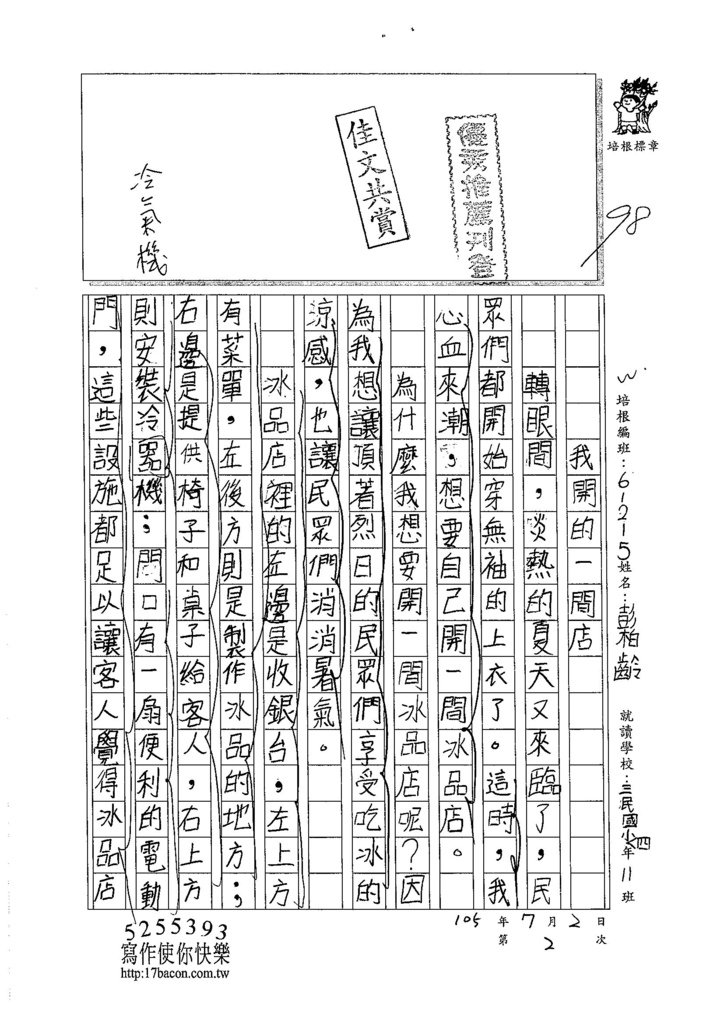 培根標章
98
優秀推薦刊登
佳文共賞
冷氣機
培根編班：61215姓名：彭柏齡 就讀學校：三民國小四年11班
我開的一間店
轉眼間，炎熱的夏天又來臨了，民
眾們都開始穿無袖的上衣了。這時，我
心血來潮，想要自己開一間冰品店。
為什麼我想要開一間冰品店呢？因
為我想讓頂著烈日的民眾們享受吃冰的
涼感，也讓民眾們消消暑氣。
冰品店裡的左邊是收銀台，左上方
有菜單，左後方則是製作冰品的地方；
右邊是提供椅子和桌子給客人，右上方
則安裝冷器機；門口有一扇便利的電動
門，這些設施都足以讓客人覺得冰品店
105年7月2日
第2次
5255393
寫作使你快樂
http:17bacon.com.tw